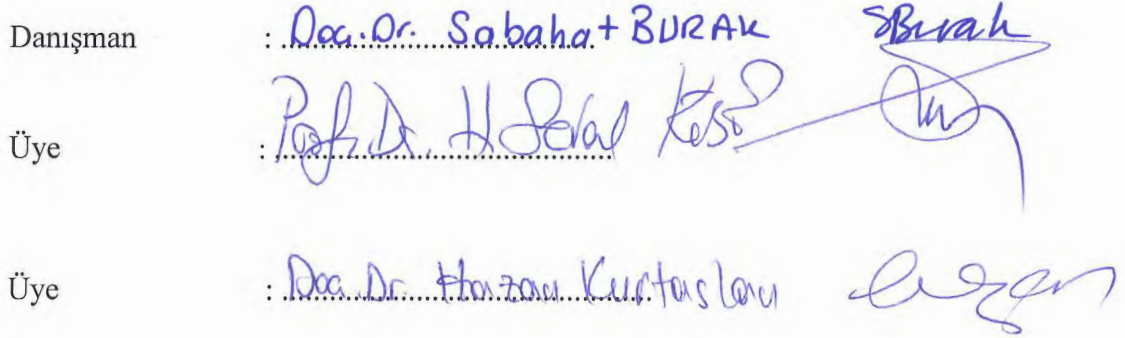 Danışman : Doç. Dr. Sabahat BURAK SBurak
Üye : Prof. Dr. H. Seval
Üye : Doç. Dr. Hazan Kurtaslan